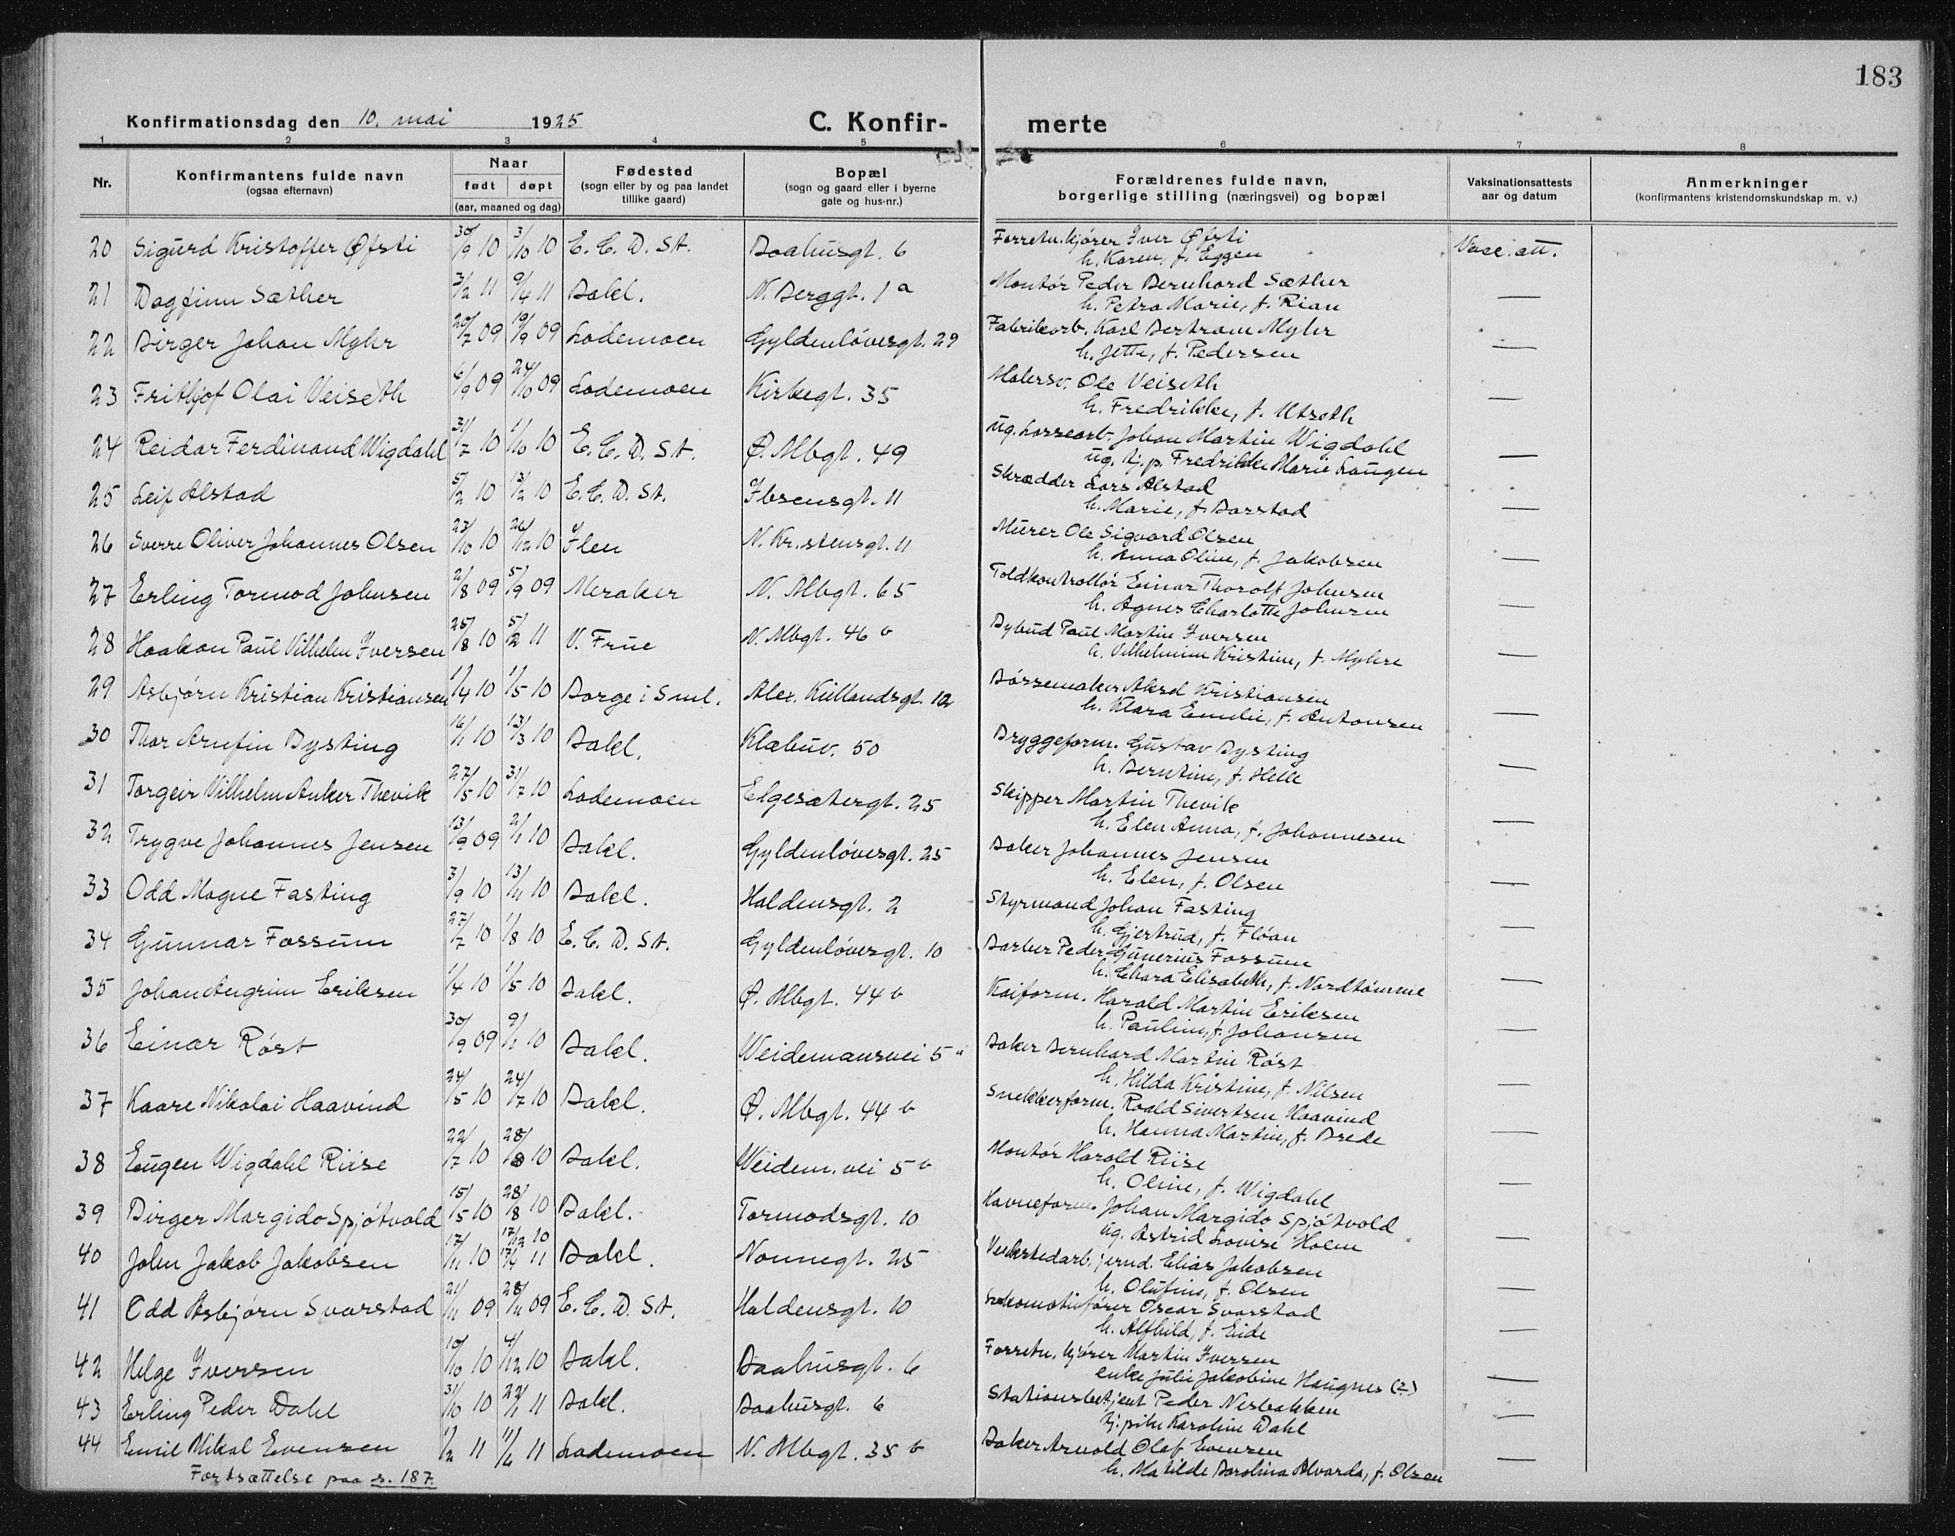 183
Konfirmationsdag den 10. mai 1925 C. Konfir- merte
1 2 3 4 5 6 7 8
Nr. Konfirmantens fulde navn (ogsaa efternavn) Naar født døpt (aar, maaned og dag) Fødested (sogn eller by og paa landet tillike gaard) Bopæl (sogn og gaard eller i byerne gate og hus-nr.) Forældrenes fulde navn, borgerlige stilling (næringsvei) og bopæl Vaksinationsattests aar og datum Anmerkninger (konfirmantens kristendomskundskap m. v.)
20 Sigurd Kristoffer Øfsti 30/9 10 3/10 10 E. C. D. St. Baahusgt. 6 Forretn.kjører Iver Øfsti
h. Karen, f. Eggen Vacc. att.
21 Dagfinn Sæther 3/2 11 9/4 11 Bakl. N. Berggt. 1a Montør Peder Bernhard Sæther
h. Petra Marie, f. Rian —
22 Birger Johan Myhr 20/7 09 19/9 09 Lademoen Gyldenløvesgt. 29 Fabrikarb. Karl Bertram Myhr
h. Jette, f. Pedersen —
23 Frithjof Olai Veiseth 6/9 09 24/10 09 Lademoen Kirkegt. 35 Malersv. Ole Veiseth
h. Fredrikke, f. Utseth —
24 Reidar Ferdinand Wigdahl 31/7 10 1/10 10 E. C. D. St. Ø. Mbgt. 49 ug. Lossearb. Johan Martin Wigdahl
ug. tj.p. Fredrikke Marie Laugen —
25 Leif Alstad 5/2 10 13/2 10 E. C. D. St. Ibsensgt. 11 Skrædder Lars Alstad
h. Marie, f. Barstad —
26 Sverre Oliver Johannes Olsen 23/10 10 26/12 10 Ilen N. Kr.stensgt. 11 Murer Ole Sigvard Olsen
h. Anna Oline, f. Jakobsen —
27 Erling Tormod Johnsen 2/8 09 5/9 09 Meraker N. Mbgt. 65 Toldkontrollør Einar Thorolf Johnsen
h. Agnes Charlotte Johnsen —
28 Haakon Paul Vilhelm Iversen 25/8 10 5/2 11 V. Frue N. Mbgt. 46 b Bybud Paul Martin Iversen
h. Vilhelmine Kristine, f. Myhre —
29 Asbjørn Kristian Kristiansen 1/4 10 1/5 10 Borge i Sml. Alex. Kiellandsgt. 12 Børsemaker Aksel Kristiansen
h. Klara Emilie, f. Antonsen —
30 Thor Arnfin Bysting 16/1 10 13/3 10 Bakl. Klæbuv. 50 Bryggeform. Gustav Bysting
h. Berntine, f. Helle —
31 Torgeir Vilhelm Anker Thevik 27/5 10 31/7 10 Lademoen Elgesætergt. 25 Skipper Martin Thevik
h. Elen Anna, f. Johannesen —
32 Trygve Johannes Jensen 13/9 09 2/1 10 Bakl. Gyldenløvesgt. 25 Baker Johannes Jensen
h. Elen, f. Olsen —
33 Odd Magne Fasting 3/9 10 13/11 10 Bakl. Haldensgt. 2 Styrmand Johan Fasting
h. Gjertrud, f. Fløan
34 Gunnar Fossum 27/7 10 1/8 10 E. C. D. St. Gyldenløvesgt. 10 Barber Peder Gunerius Fossum
h. Chara Elisabeth, f. Nordtømme —
35 Johan Angrim Eriksen 1/4 10 1/5 10 Bakl. Ø. Mbgt. 44 b Kaiform. Harald Martin Eriksen
h. Pauline, f. Johansen —
36 Einar Røst 30/9 09 9/1 10 Bakl. Weidemansvei 5 a Baker Bernhard Martin Røst
h. Hilda Kristine, f. Nilsen —
37 Kaare Nikolai Haavind 24/5 10 24/7 10 Bakl. Ø. Mbgt. 44 b Snekkerform. Roald Sivertsen Haavind
h. Hanna Martine, f. Brede —
38 Eugen Wigdahl Riise 22/7 10 28/8 10 Bakl. Weidem.vei 5 b Montør Harald Riise
h. Oline, f. Wigdahl —
39 Birger Margido Spjøtvold 15/5 10 28/8 10 Bakl. Tormodsgt. 10 Havneform. Johan Margido Spjøtvold
ug. Astrid Lovise Holm —
40 John Jakob Jakobsen 17/11 10 17/12 10 17/4 11 Bakl. Nonnegt. 25 Verkstedarb. jernb. Elias Jakobsen
h. Olufine, f. Olsen —
41 Odd Asbjørn Svarstad 21/11 09 28/11 09 E. C. D. St. Haldensgt. 10 Lokomotivfører Oscar Svarstad
h. Alfhild, f. Eide —
42 Helge Iversen 10/10 10 4/12 10 Bakl. Baahusgt. 6 Forretn. kjører Martin Iversen
enke Julie Jakobine Haugnes (?) —
43 Erling Peder Dahl 31/10 10 22/1 11 Bakl. Baahusgt. 6 Stationsbetjent Peder Nesbakken
tj.pike Karoline Dahl —
44 Emil Nikal Evensen 1/2 11 11/6 11 Lademoen N. Mbgt. 35 b Baker Arnold Olaf Evensen
h. Matilde Barolina Alvarda, f. Olsen —
Fortsættelse paa s. 187.